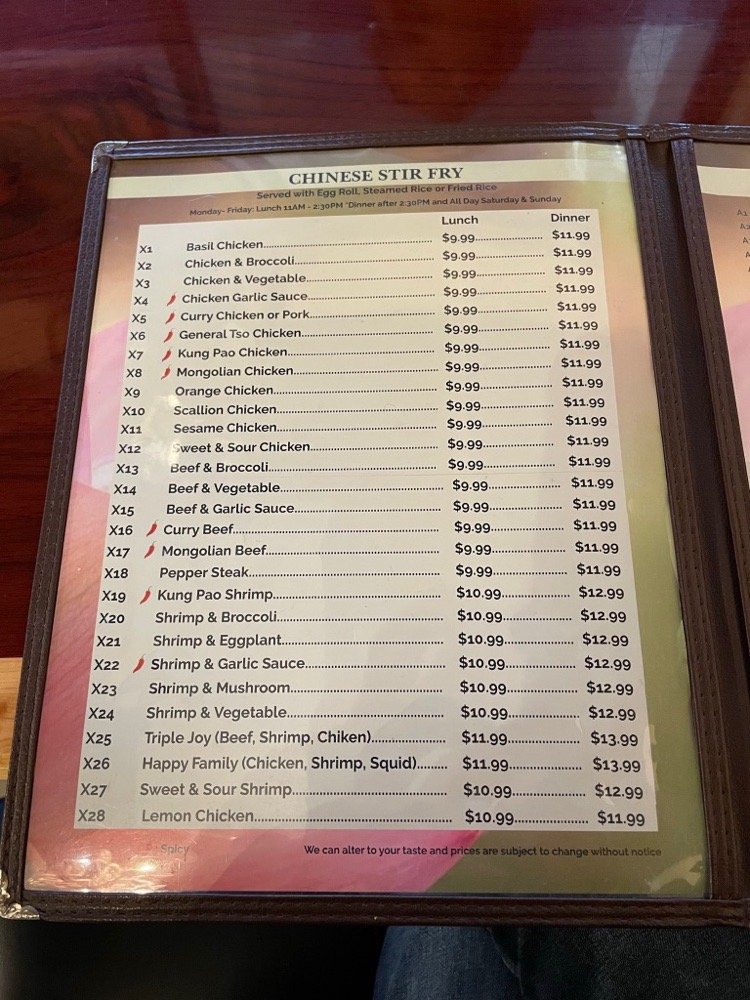 CHINESE STIR FRY
Served with Egg Roll, Steamed Rice or Fried Rice
Monday- Friday: Lunch 11AM - 2:30PM *Dinner after 2:30PM and All Day Saturday & Sunday
Lunch Dinner
X1 Basil Chicken $9.99 $11.99
X2 Chicken & Broccoli $9.99 $11.99
X3 Chicken & Vegetable $9.99 $11.99
X4 Chicken Garlic Sauce $9.99 $11.99
X5 Curry Chicken or Pork $9.99 $11.99
X6 General Tso Chicken $9.99 $11.99
X7 Kung Pao Chicken $9.99 $11.99
X8 Mongolian Chicken $9.99 $11.99
X9 Orange Chicken $9.99 $11.99
X10 Scallion Chicken $9.99 $11.99
X11 Sesame Chicken $9.99 $11.99
X12 Sweet & Sour Chicken $9.99 $11.99
X13 Beef & Broccoli $9.99 $11.99
X14 Beef & Vegetable $9.99 $11.99
X15 Beef & Garlic Sauce $9.99 $11.99
X16 Curry Beef $9.99 $11.99
X17 Mongolian Beef $9.99 $11.99
X18 Pepper Steak $9.99 $11.99
X19 Kung Pao Shrimp $10.99 $12.99
X20 Shrimp & Broccoli $10.99 $12.99
X21 Shrimp & Eggplant $10.99 $12.99
X22 Shrimp & Garlic Sauce $10.99 $12.99
X23 Shrimp & Mushroom $10.99 $12.99
X24 Shrimp & Vegetable $10.99 $12.99
X25 Triple Joy (Beef, Shrimp, Chiken) $11.99 $13.99
X26 Happy Family (Chicken, Shrimp, Squid) $11.99 $13.99
X27 Sweet & Sour Shrimp $10.99 $12.99
X28 Lemon Chicken $10.99 $11.99
Spicy We can alter to your taste and prices are subject to change without notice